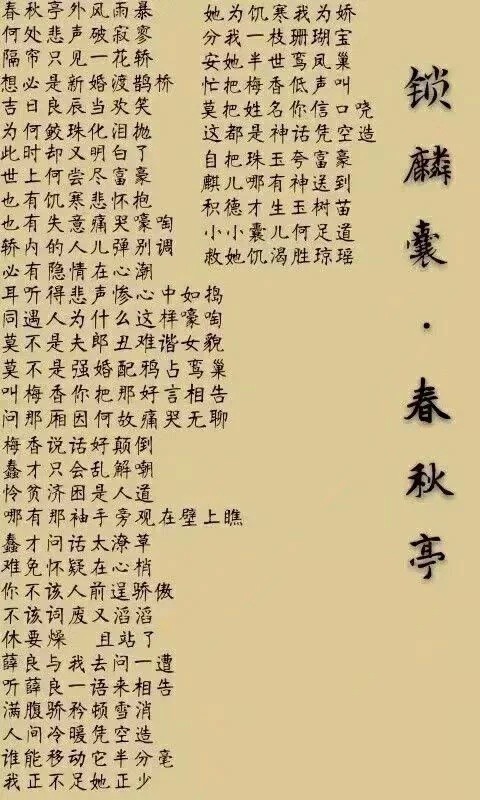 锁麟囊·春秋亭
春秋亭外风雨暴
何处悲声破寂寥
隔帘只见一花轿
想必是新婚渡鹊桥
吉日良辰当欢笑
为何鲛珠化泪抛
此时却又明白了
世上何尝尽富豪
也有饥寒悲怀抱
也有失意痛哭嚎啕
轿内的人儿弹别调
必有隐情在心潮
耳听得悲声惨心中如捣
同遇人为什么这样嚎啕
莫不是夫郎丑难谐女貌
莫不是强婚配鸦占鸾巢
叫梅香你把那好言相告
问那厢因何故痛哭无聊
梅香说话好颠倒
蠢才只会乱解嘲
怜贫济困是人道
哪有那袖手旁观在壁上瞧
蠢才问话太潦草
难免怀疑在心梢
你不该人前逞骄傲
不该词废又滔滔
休要燥 且站了
薛良与我去问一遭
听薛良一语来相告
满腹骄矜顿雪消
人间冷暖凭空造
谁能移动它半分毫
我正不足她正少
她为饥寒我为娇
分我一枝珊瑚宝
安她半世鸾凤巢
忙把梅香低声叫
莫把姓名你信口哓
这都是神话凭空造
自把珠玉夸富豪
麒儿哪有神送到
积德才生玉树苗
小小囊儿何足道
救她饥渴胜琼瑶